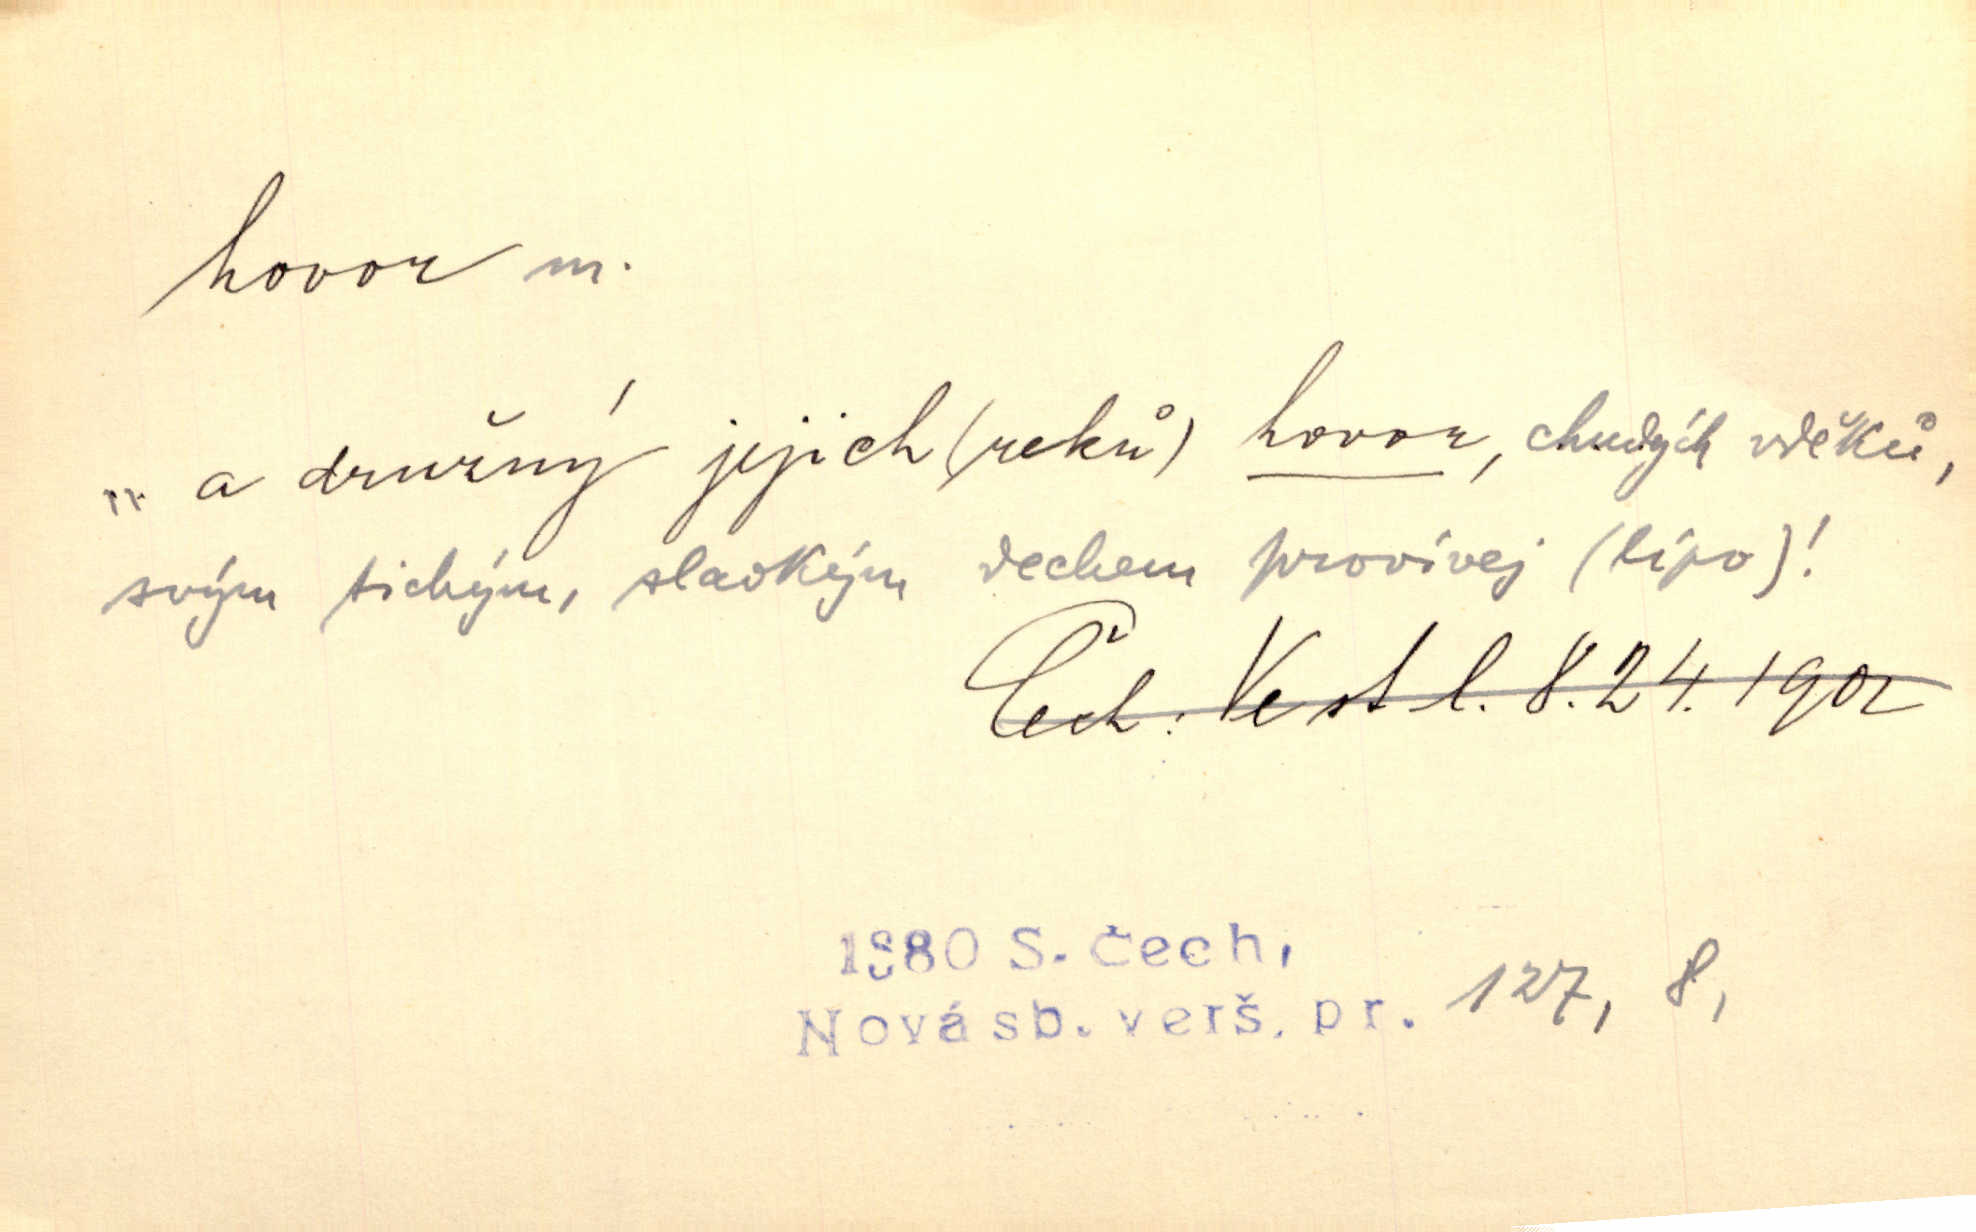 hovor m.
„ a družný jejich (reků) hovor, chudých vděků,
svým tichým, sladkým dechem provívej (lípo)!
Čech: Ve st l. 8. 24. 1902
1880 S. Čech,
Nová sb. verš. pr. 127, 8,